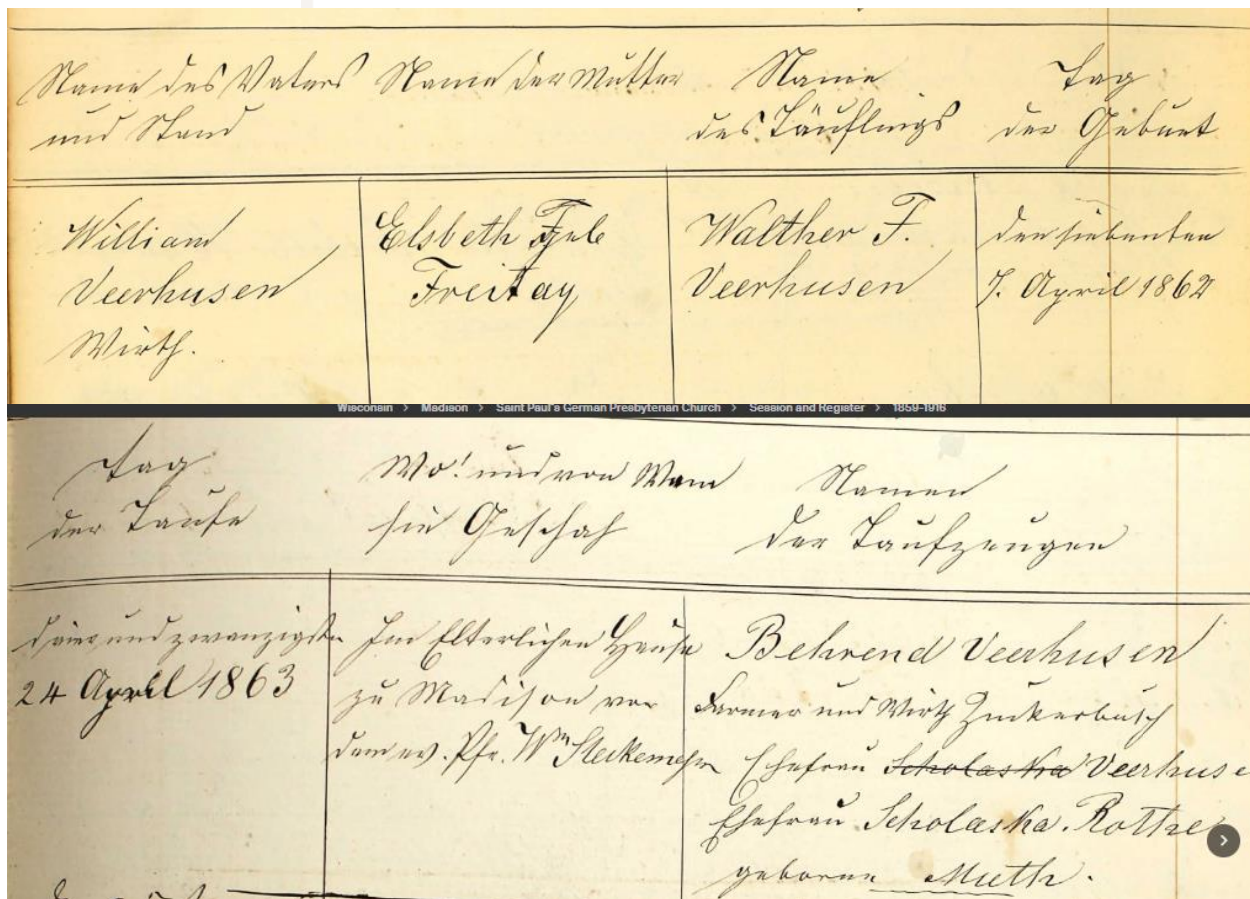 Name des Vaters
und Stand
Name der Mutter
Name
des Täuflings
Tag
der Geburt
William
Veerhusen
Wirth.
Elsbeth
Freitag
Walther F.
Veerhusen
den siebenten
7. April 1862
Wisconsin > Madison > Saint Paul's German Presbyterian Church > Session and Register > 1859-1916
Tag
der Taufe
Wo! und von Wem
sie Geschah
Namen
der Taufzeugen
und zwanzigsten
24 April 1863
Im Elterlichen Hause
zu Madison von
dem ev. Pfr. Wm
Behrend Veerhusen
Farmer und Wirth Zuckerbusch
Ehefrau Scholaska Veerhuse
Ehefrau Scholaska. Rothe
geborne Muth.